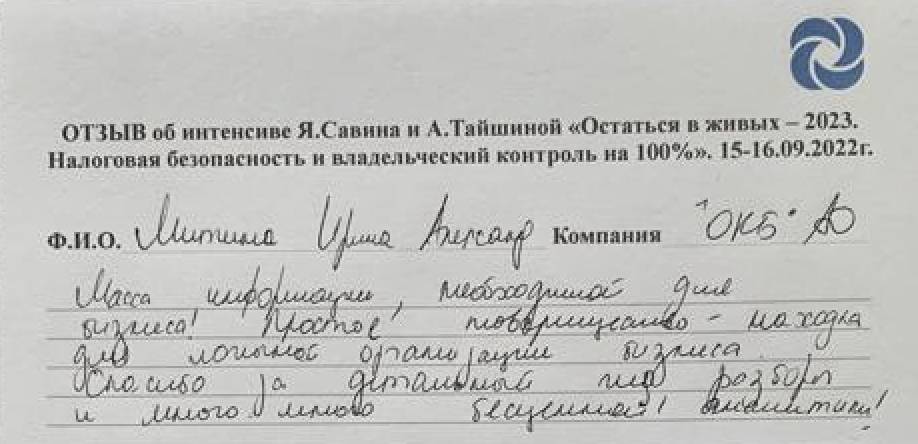 ОТЗЫВ об интенсиве Я.Савина и А.Тайшиной «Остаться в живых – 2023.
Налоговая безопасность и владельческий контроль на 100%». 15-16.09.2022г.
Ф.И.О. Митина Ирина Александр Компания "ОКБ" АО
Масса информации, необходимой для
бизнеса! Простое товарищество - находка
для логичной организации бизнеса.
Спасибо за детальный разборы
и много много бесценной! аналитики!